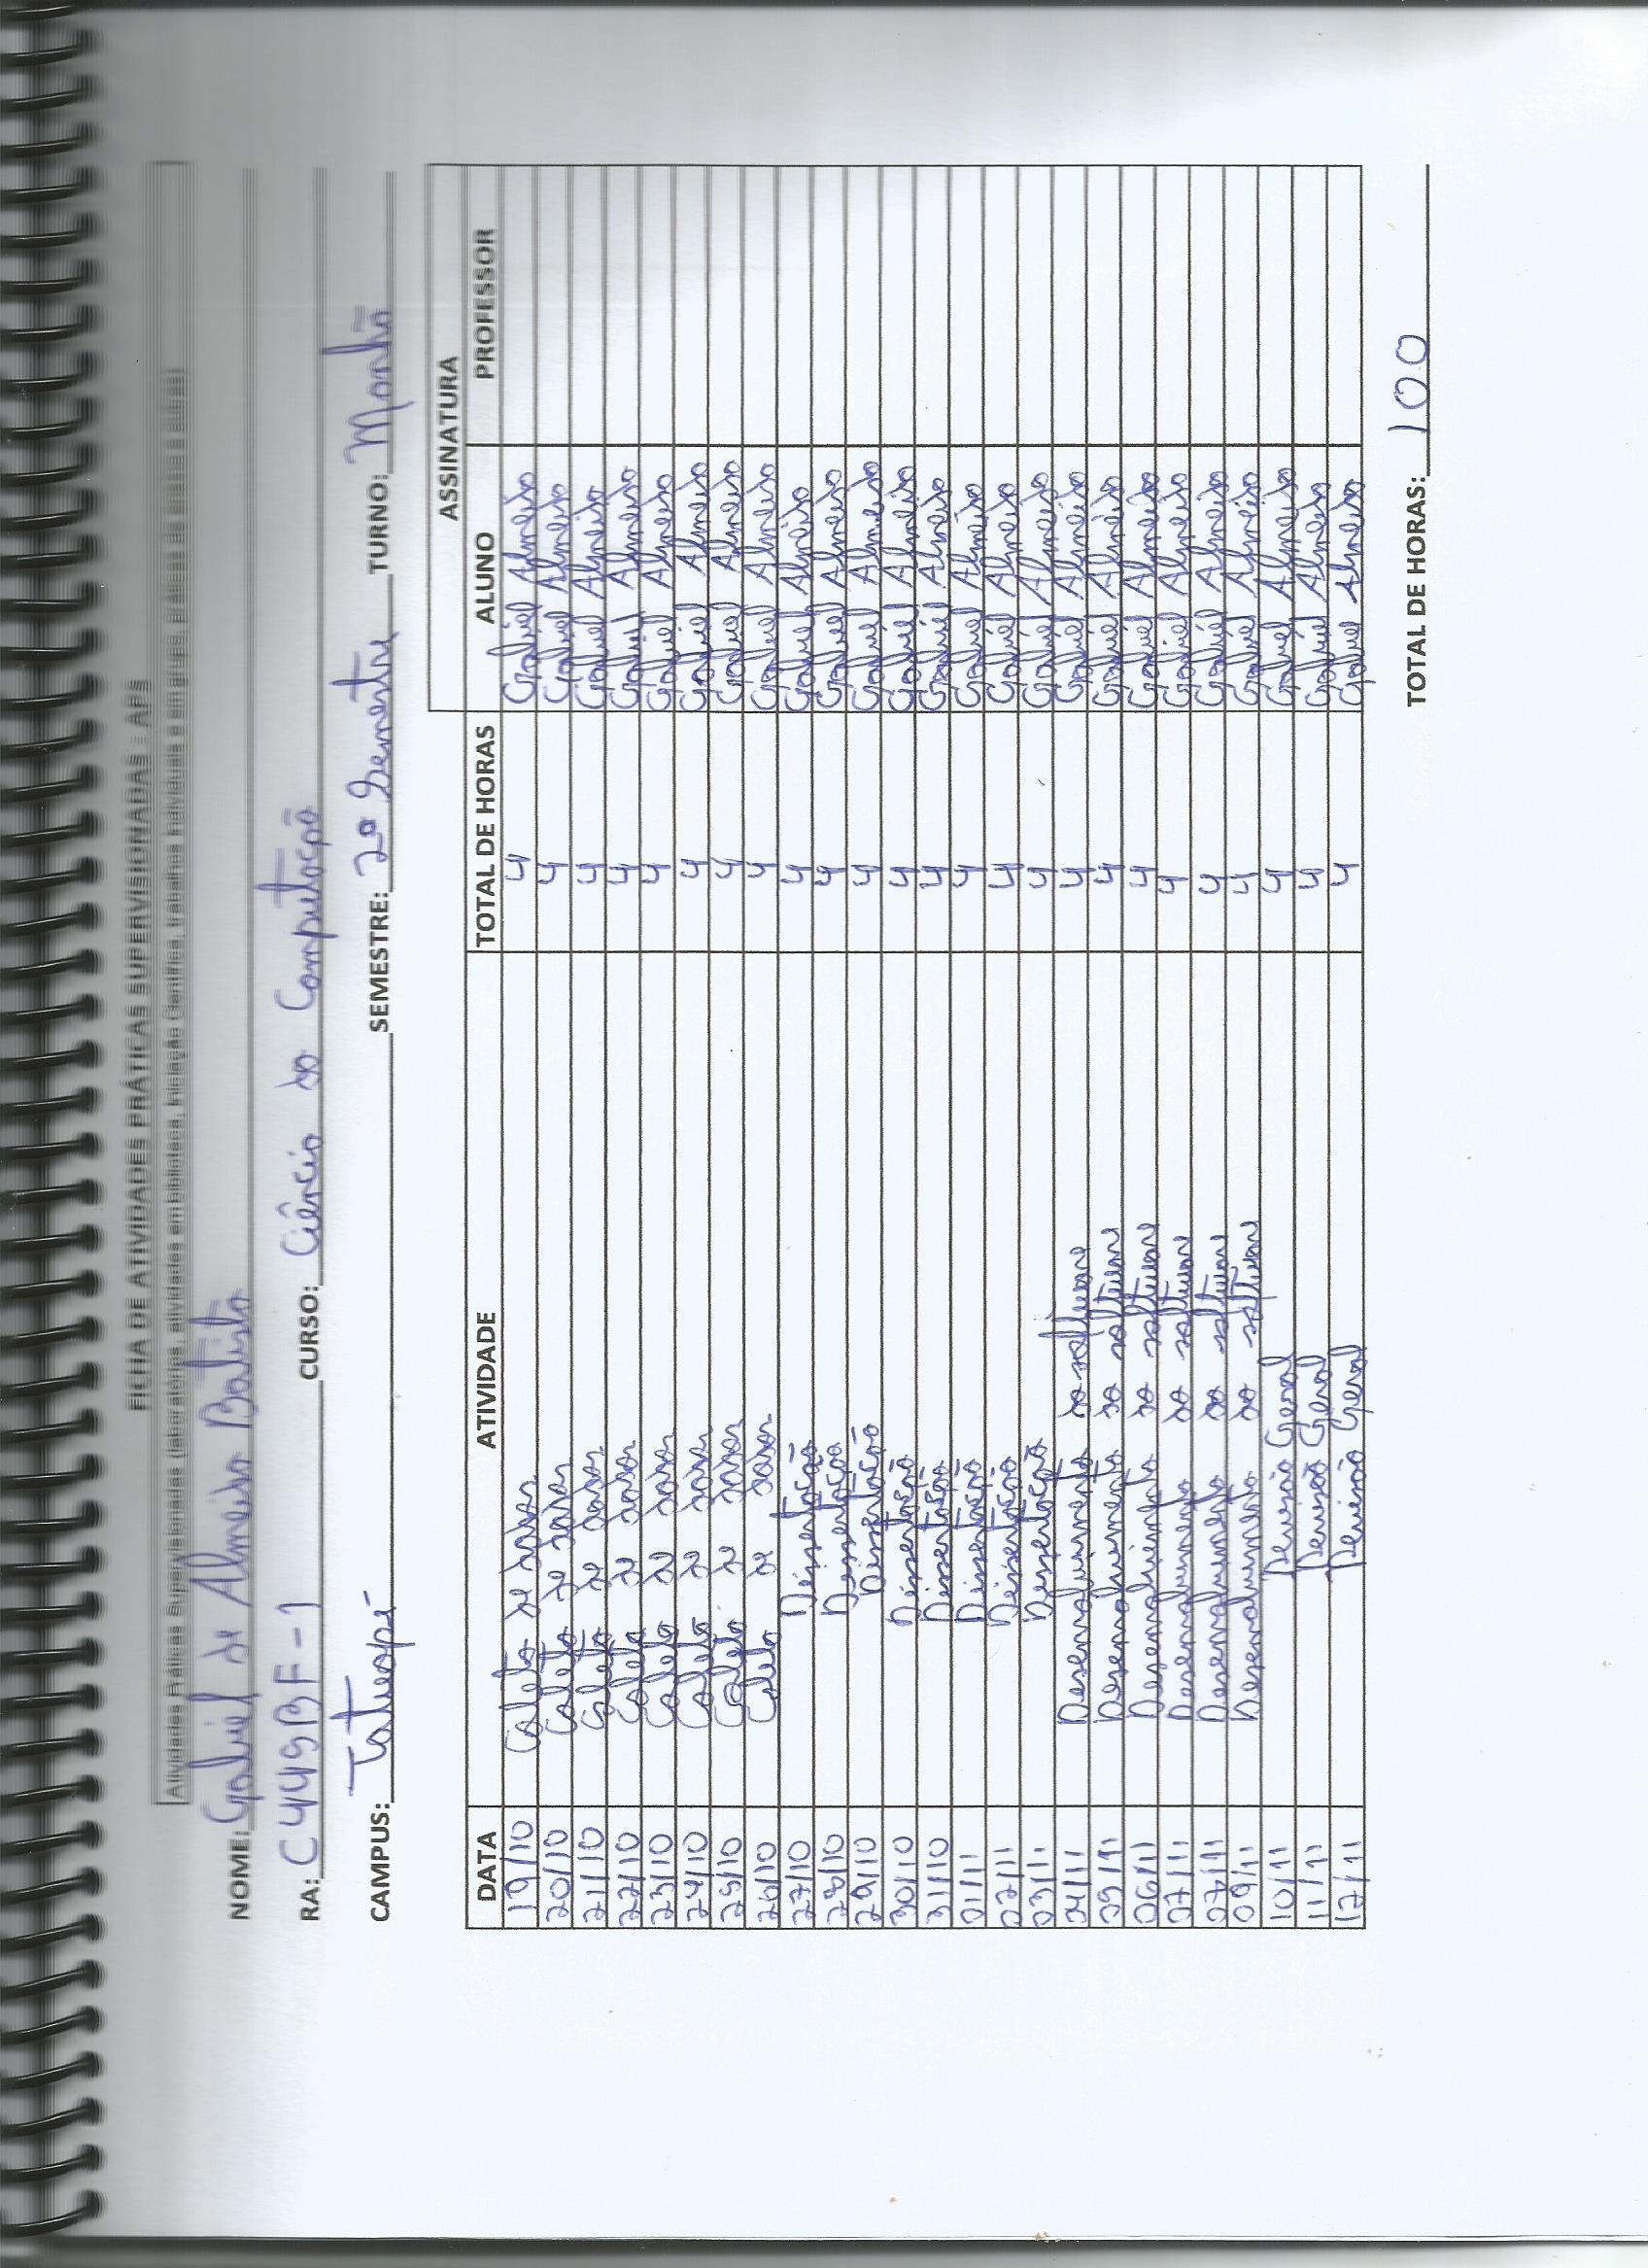 FICHA DE ATIVIDADES PRÁTICAS SUPERVISIONADAS - APS
Atividades Práticas Supervisionadas (laboratórios, atividades em biblioteca, Iniciação Científica, trabalhos Individuais e em grupo, práticas de ensino e outras)
NOME: Gabriel de Almeida Batista
RA: C449BF-1 CURSO: Ciência da Computação
CAMPUS: Tatuapé SEMESTRE: 2º Semestre TURNO: Manhã
ASSINATURA
DATA ATIVIDADE TOTAL DE HORAS ALUNO PROFESSOR
19/10 Coleta de dados 4 Gabriel Almeida
20/10 Coleta de dados 4 Gabriel Almeida
21/10 Coleta de dados 4 Gabriel Almeida
22/10 Coleta de dados 4 Gabriel Almeida
23/10 Coleta de dados 4 Gabriel Almeida
24/10 Coleta de dados 4 Gabriel Almeida
25/10 Coleta de dados 4 Gabriel Almeida
26/10 Coleta de dados 4 Gabriel Almeida
27/10 Dissertação 4 Gabriel Almeida
28/10 Dissertação 4 Gabriel Almeida
29/10 Dissertação 4 Gabriel Almeida
30/10 Dissertação 4 Gabriel Almeida
31/10 Dissertação 4 Gabriel Almeida
01/11 Dissertação 4 Gabriel Almeida
02/11 Dissertação 4 Gabriel Almeida
03/11 Dissertação 4 Gabriel Almeida
04/11 Desenvolvimento do software 4 Gabriel Almeida
05/11 Desenvolvimento do software 4 Gabriel Almeida
06/11 Desenvolvimento do software 4 Gabriel Almeida
07/11 Desenvolvimento do software 4 Gabriel Almeida
08/11 Desenvolvimento do software 4 Gabriel Almeida
09/11 Desenvolvimento do software 4 Gabriel Almeida
10/11 Revisão Geral 4 Gabriel Almeida
11/11 Revisão Geral 4 Gabriel Almeida
12/11 Revisão Geral 4 Gabriel Almeida
TOTAL DE HORAS: 100